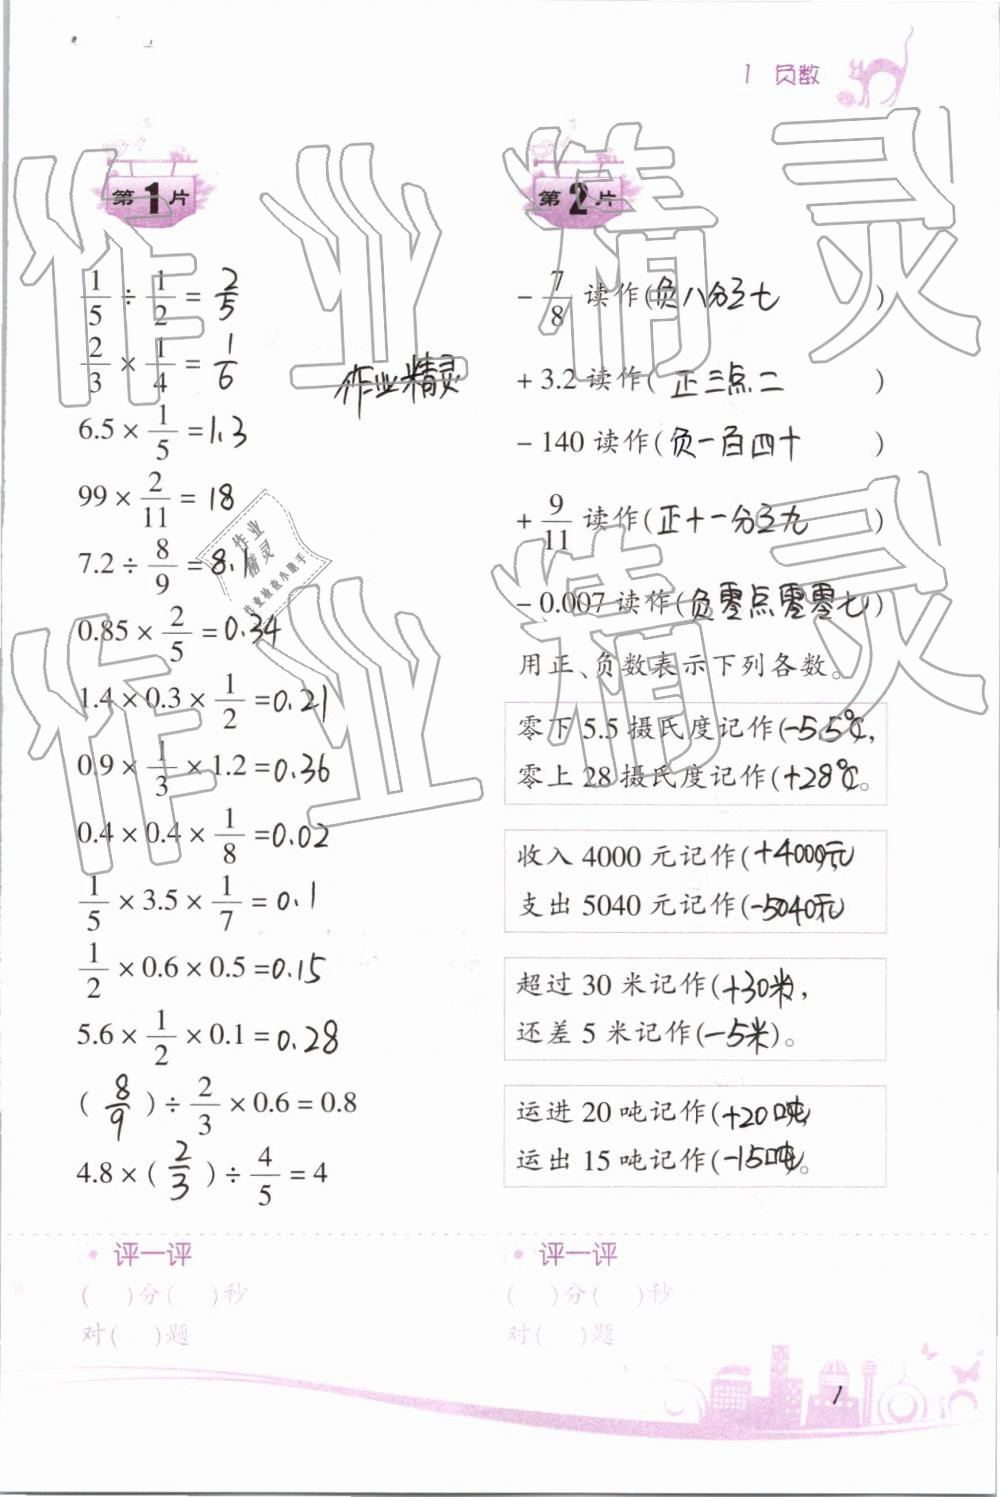 1 负数
第1片
1/5 ÷ 1/2 = 2/5
2/3 × 1/4 = 1/6
6.5 × 1/5 = 1.3
99 × 2/11 = 18
7.2 ÷ 8/9 = 8.1
0.85 × 2/5 = 0.34
1.4 × 0.3 × 1/2 = 0.21
0.9 × 1/3 × 1.2 = 0.36
0.4 × 0.4 × 1/8 = 0.02
1/5 × 3.5 × 1/7 = 0.1
1/2 × 0.6 × 0.5 = 0.15
5.6 × 1/2 × 0.1 = 0.28
( 8/9 ) ÷ 2/3 × 0.6 = 0.8
4.8 × ( 2/3 ) ÷ 4/5 = 4
评一评
( )分( )秒
对( )题
作业精灵
作业
精灵
作业检查小助手
作业精灵
作业精灵
第2片
- 7/8 读作(负八分之七)
+ 3.2 读作(正三点二)
- 140 读作(负一百四十)
+ 9/11 读作(正十一分之九)
- 0.007 读作(负零点零零七)
用正、负数表示下列各数。
零下 5.5 摄氏度记作(-5.5℃,
零上 28 摄氏度记作(+28℃。
收入 4000 元记作(+4000元)
支出 5040 元记作(-5040元)
超过 30 米记作(+30米,
还差 5 米记作(-5米)。
运进 20 吨记作(+20吨,
运出 15 吨记作(-15吨。
评一评
( )分( )秒
对( )题
1